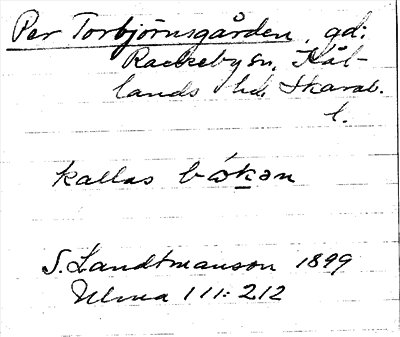 Per Torbjörnsgården, gd:
Rackeby sn, Kål-
lands hd, Skarab.
l.
kallas bökən
S. Landtmanson 1899
Ulma 111:212